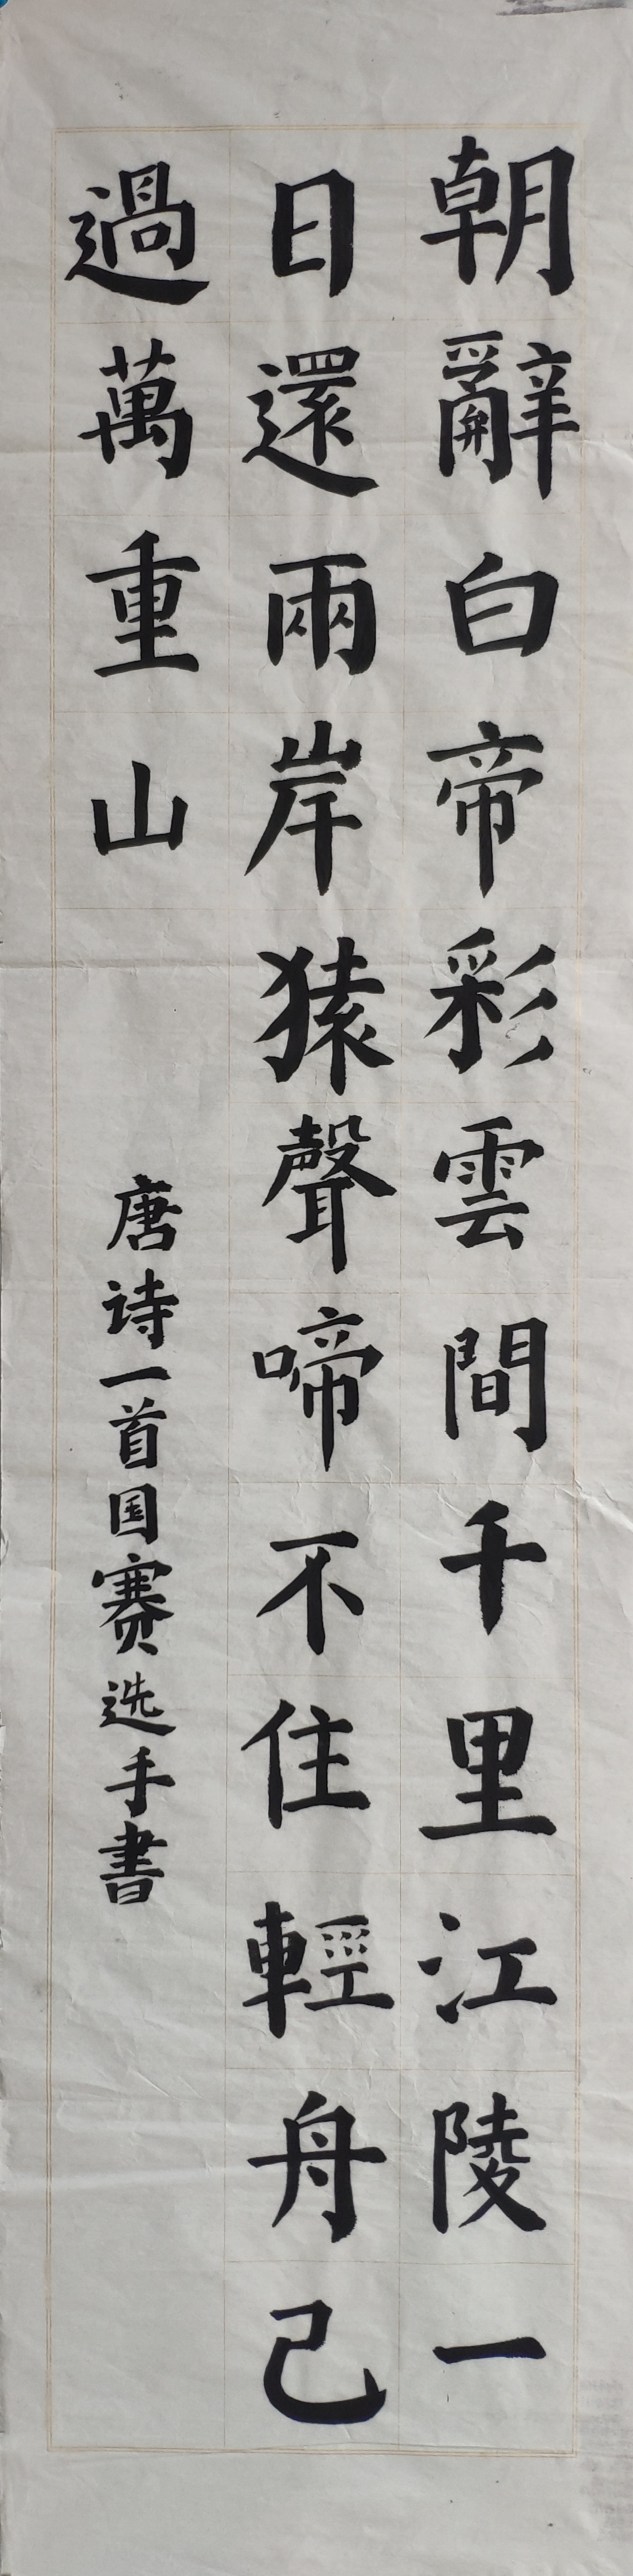 朝辭白帝彩雲間千里江陵一
日還兩岸猿聲啼不住輕舟己
過萬重山
唐诗一首国赛选手書